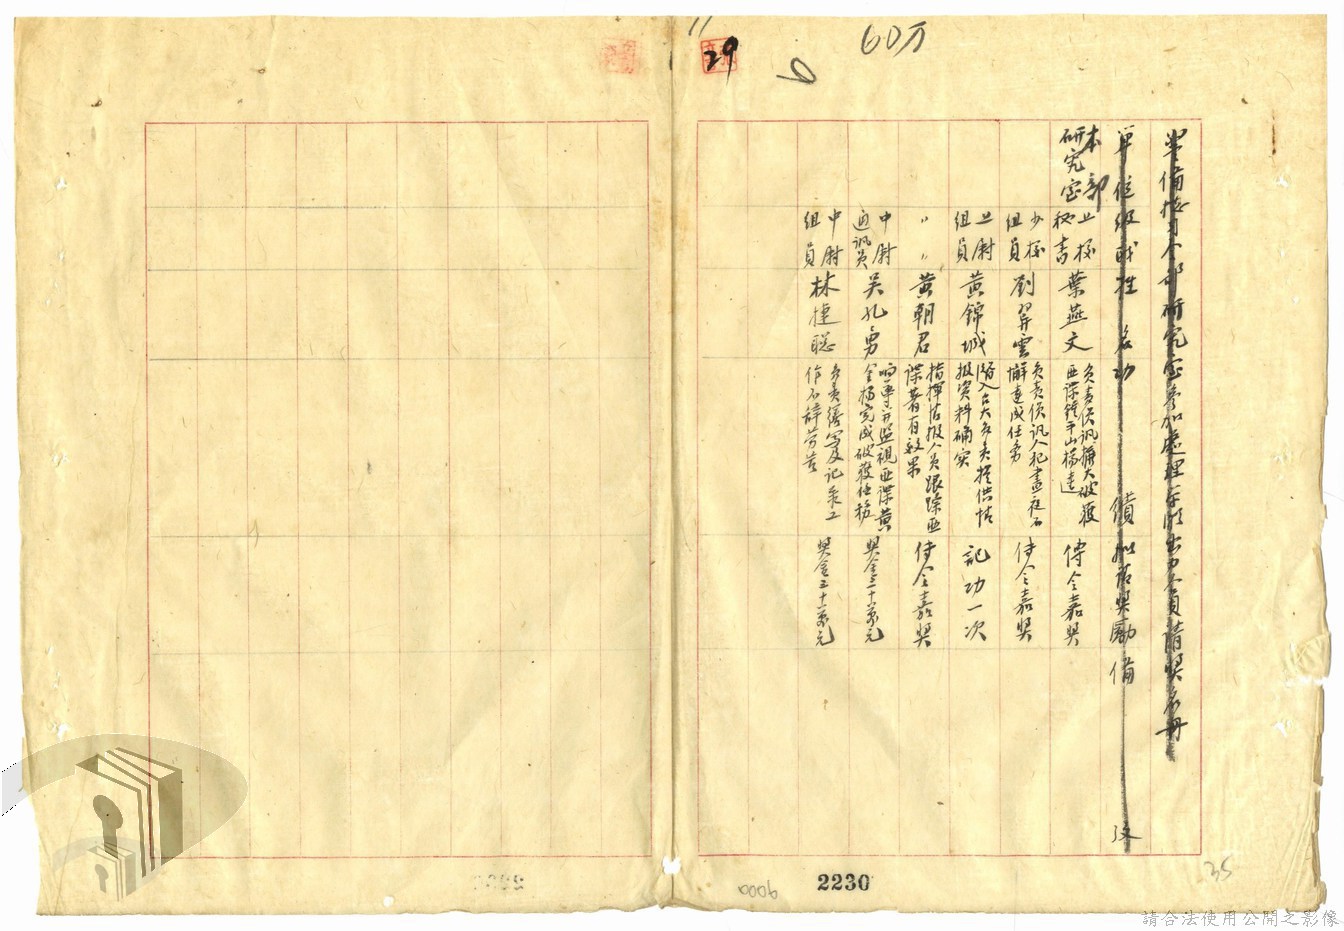 60万
29
警備總司令部研究室參加處理 出力人員請獎名冊
單位級職姓名功績擬請獎勵備攷
本部研究室
上校秘書 葉燕文 負責偵訊擴大破獲匪諜鍾平山 傳令嘉獎
少校組員 劉羿雲 負責偵訊人犯晝夜不懈達成任務 傳令嘉獎
上尉組員 黃錦城 潛入台大負責提供情報資料確实 記功一次
〃 〃 黃朝君 指揮情報人員跟踪匪諜著有效果 传令嘉獎
中尉通訊員 吴孔勇 監視匪諜黃 完成破獲任務 獎金三十萬元
中尉組員 林捷聪 負責繕寫及記录工作不辞劳苦 獎金三十萬元
2230
9006
35
請合法使用公開之影像